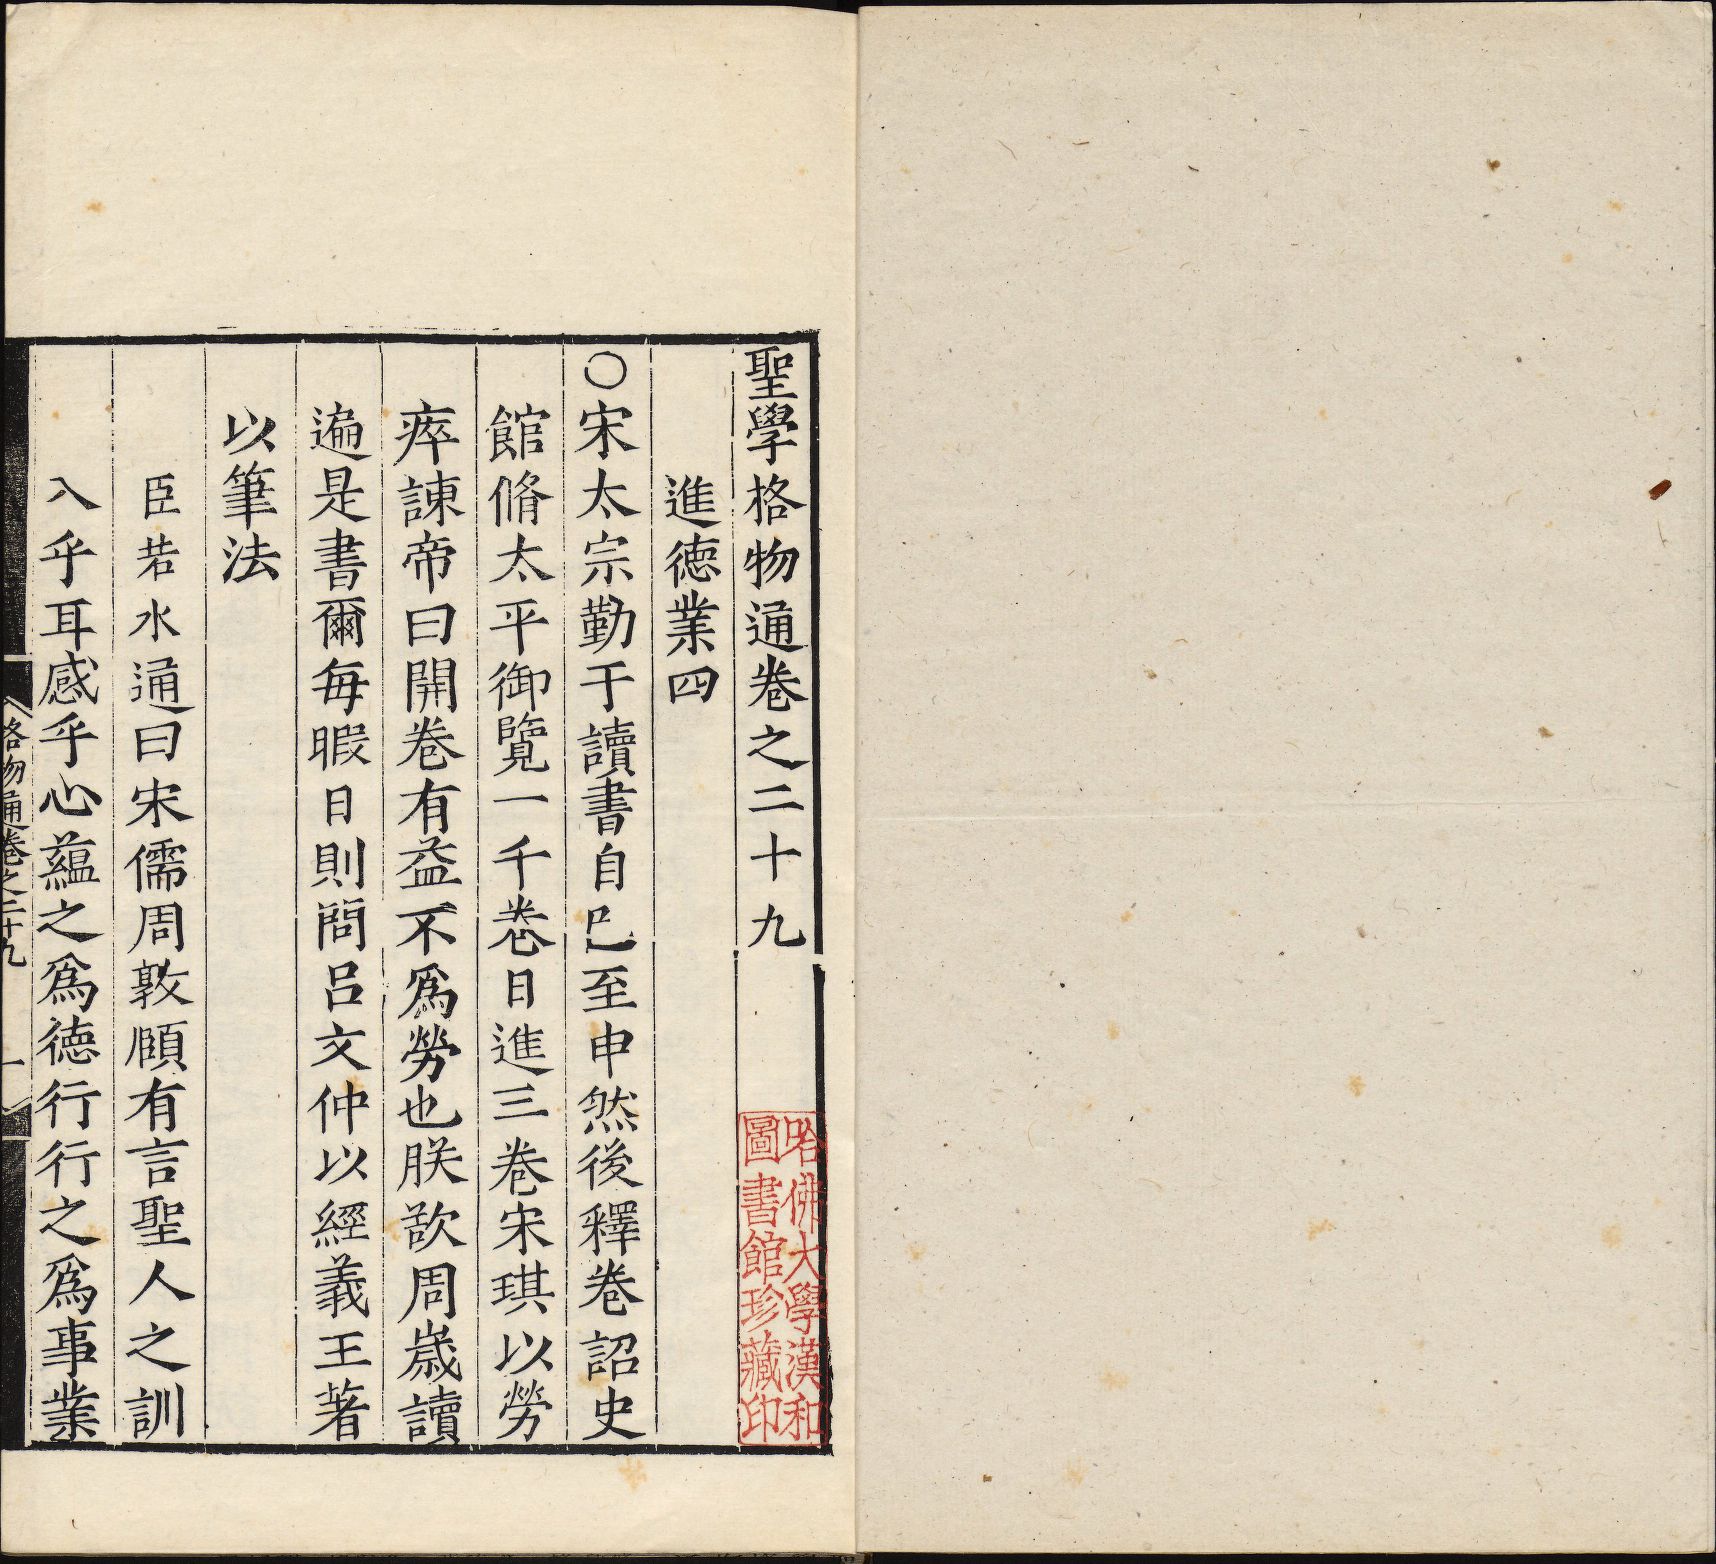 聖學格物通卷之二十九
進德業四
○宋太宗勤于讀書自巳至申然後釋卷詔史
館脩太平御覽一千卷日進三卷宋琪以勞
瘁諫帝曰開卷有益不爲勞也朕欲周歲讀
遍是書爾每暇日則問呂文仲以經義王著
以筆法
臣若水通曰宋儒周敦頤有言聖人之訓
入乎耳感乎心蘊之爲德行行之爲事業
格物通卷之二十九
一
哈佛大學漢和
圖書館珍藏印